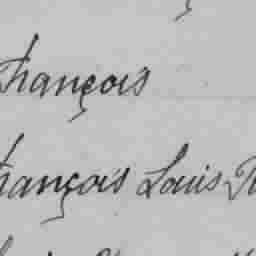 François
François Louis